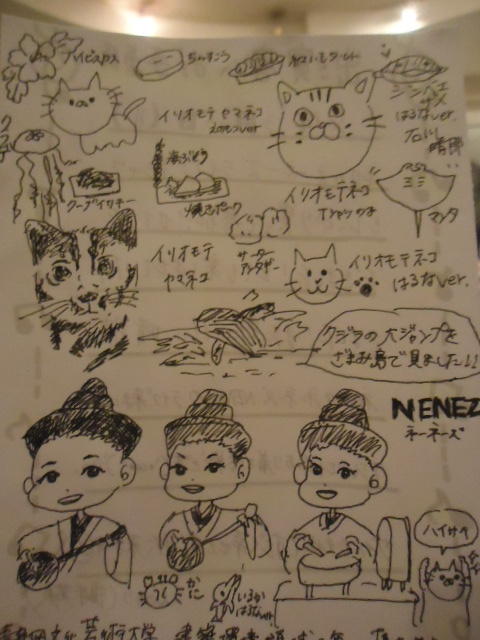 ハイビスカス
ちんすこう
べにいもタルト
ジンベエ
ザメ
はるなver.
石川
晴那
イリオモテヤマネコ
海ぶどう
クーブイリチー
焼きポーク
イリオモテネコ
マンタ
イリオモテ
ヤマネコ
サーター
アンダギー
イリオモテネコ
はるなver.
クジラの大ジャンプを
ざまみ島で見ました!!
NENEZ
ネーネーズ
ハイサイ
かに
いるか
はるなver.